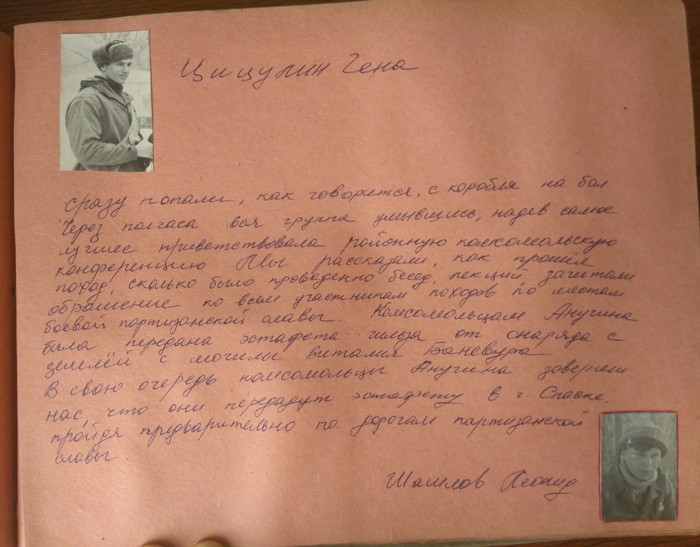 Цицулин Гена
сразу попали, как говорится, с корабля на бал
Через полчаса вся группа умывшись, надев самое
лучшее приветствовала районную комсомольскую
конференцию Мы рассказали, как прошел
поход, сколько было проведенно бесед, лекций зачитали
обращение ко всем участникам походов по местам
боевой партизанской славы. Комсомольцам Анучина
была передана эстафета гильза от снаряда с
землёй с могилы Виталия Баневура
В свою очередь комсомольцы Анучина заверили
нас, что они передадут эстафету в г. Спасск,
пройдя предварительно по дорогам партизанской
славы.
Шашлов Леонид